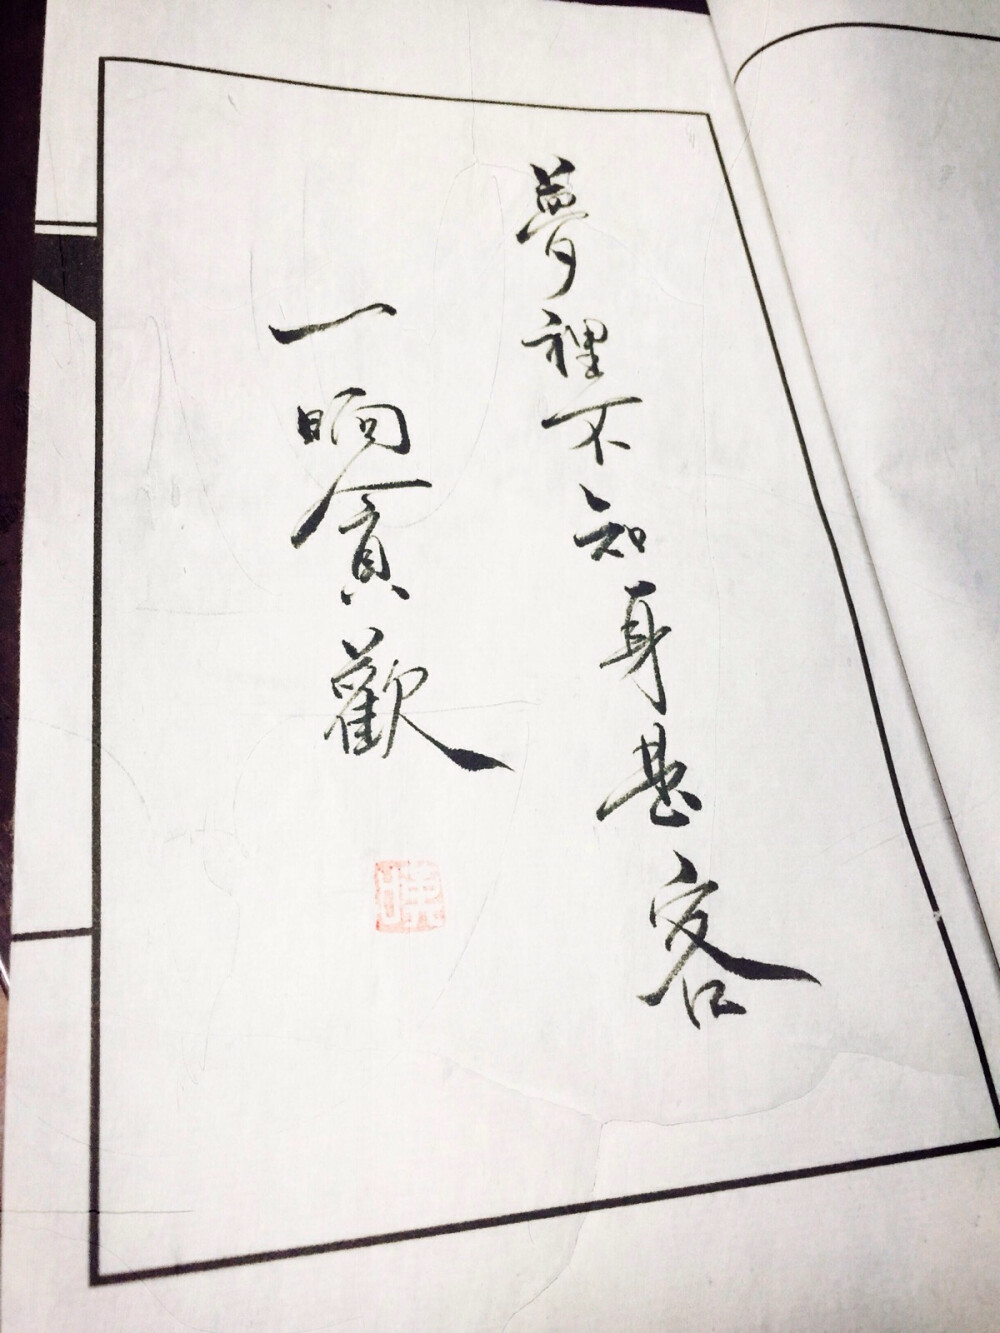 夢裡不知身是客
一晌貪歡